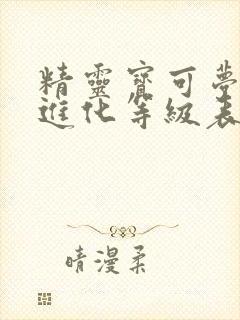 精靈寶可夢
進化等級表
晴漫柔